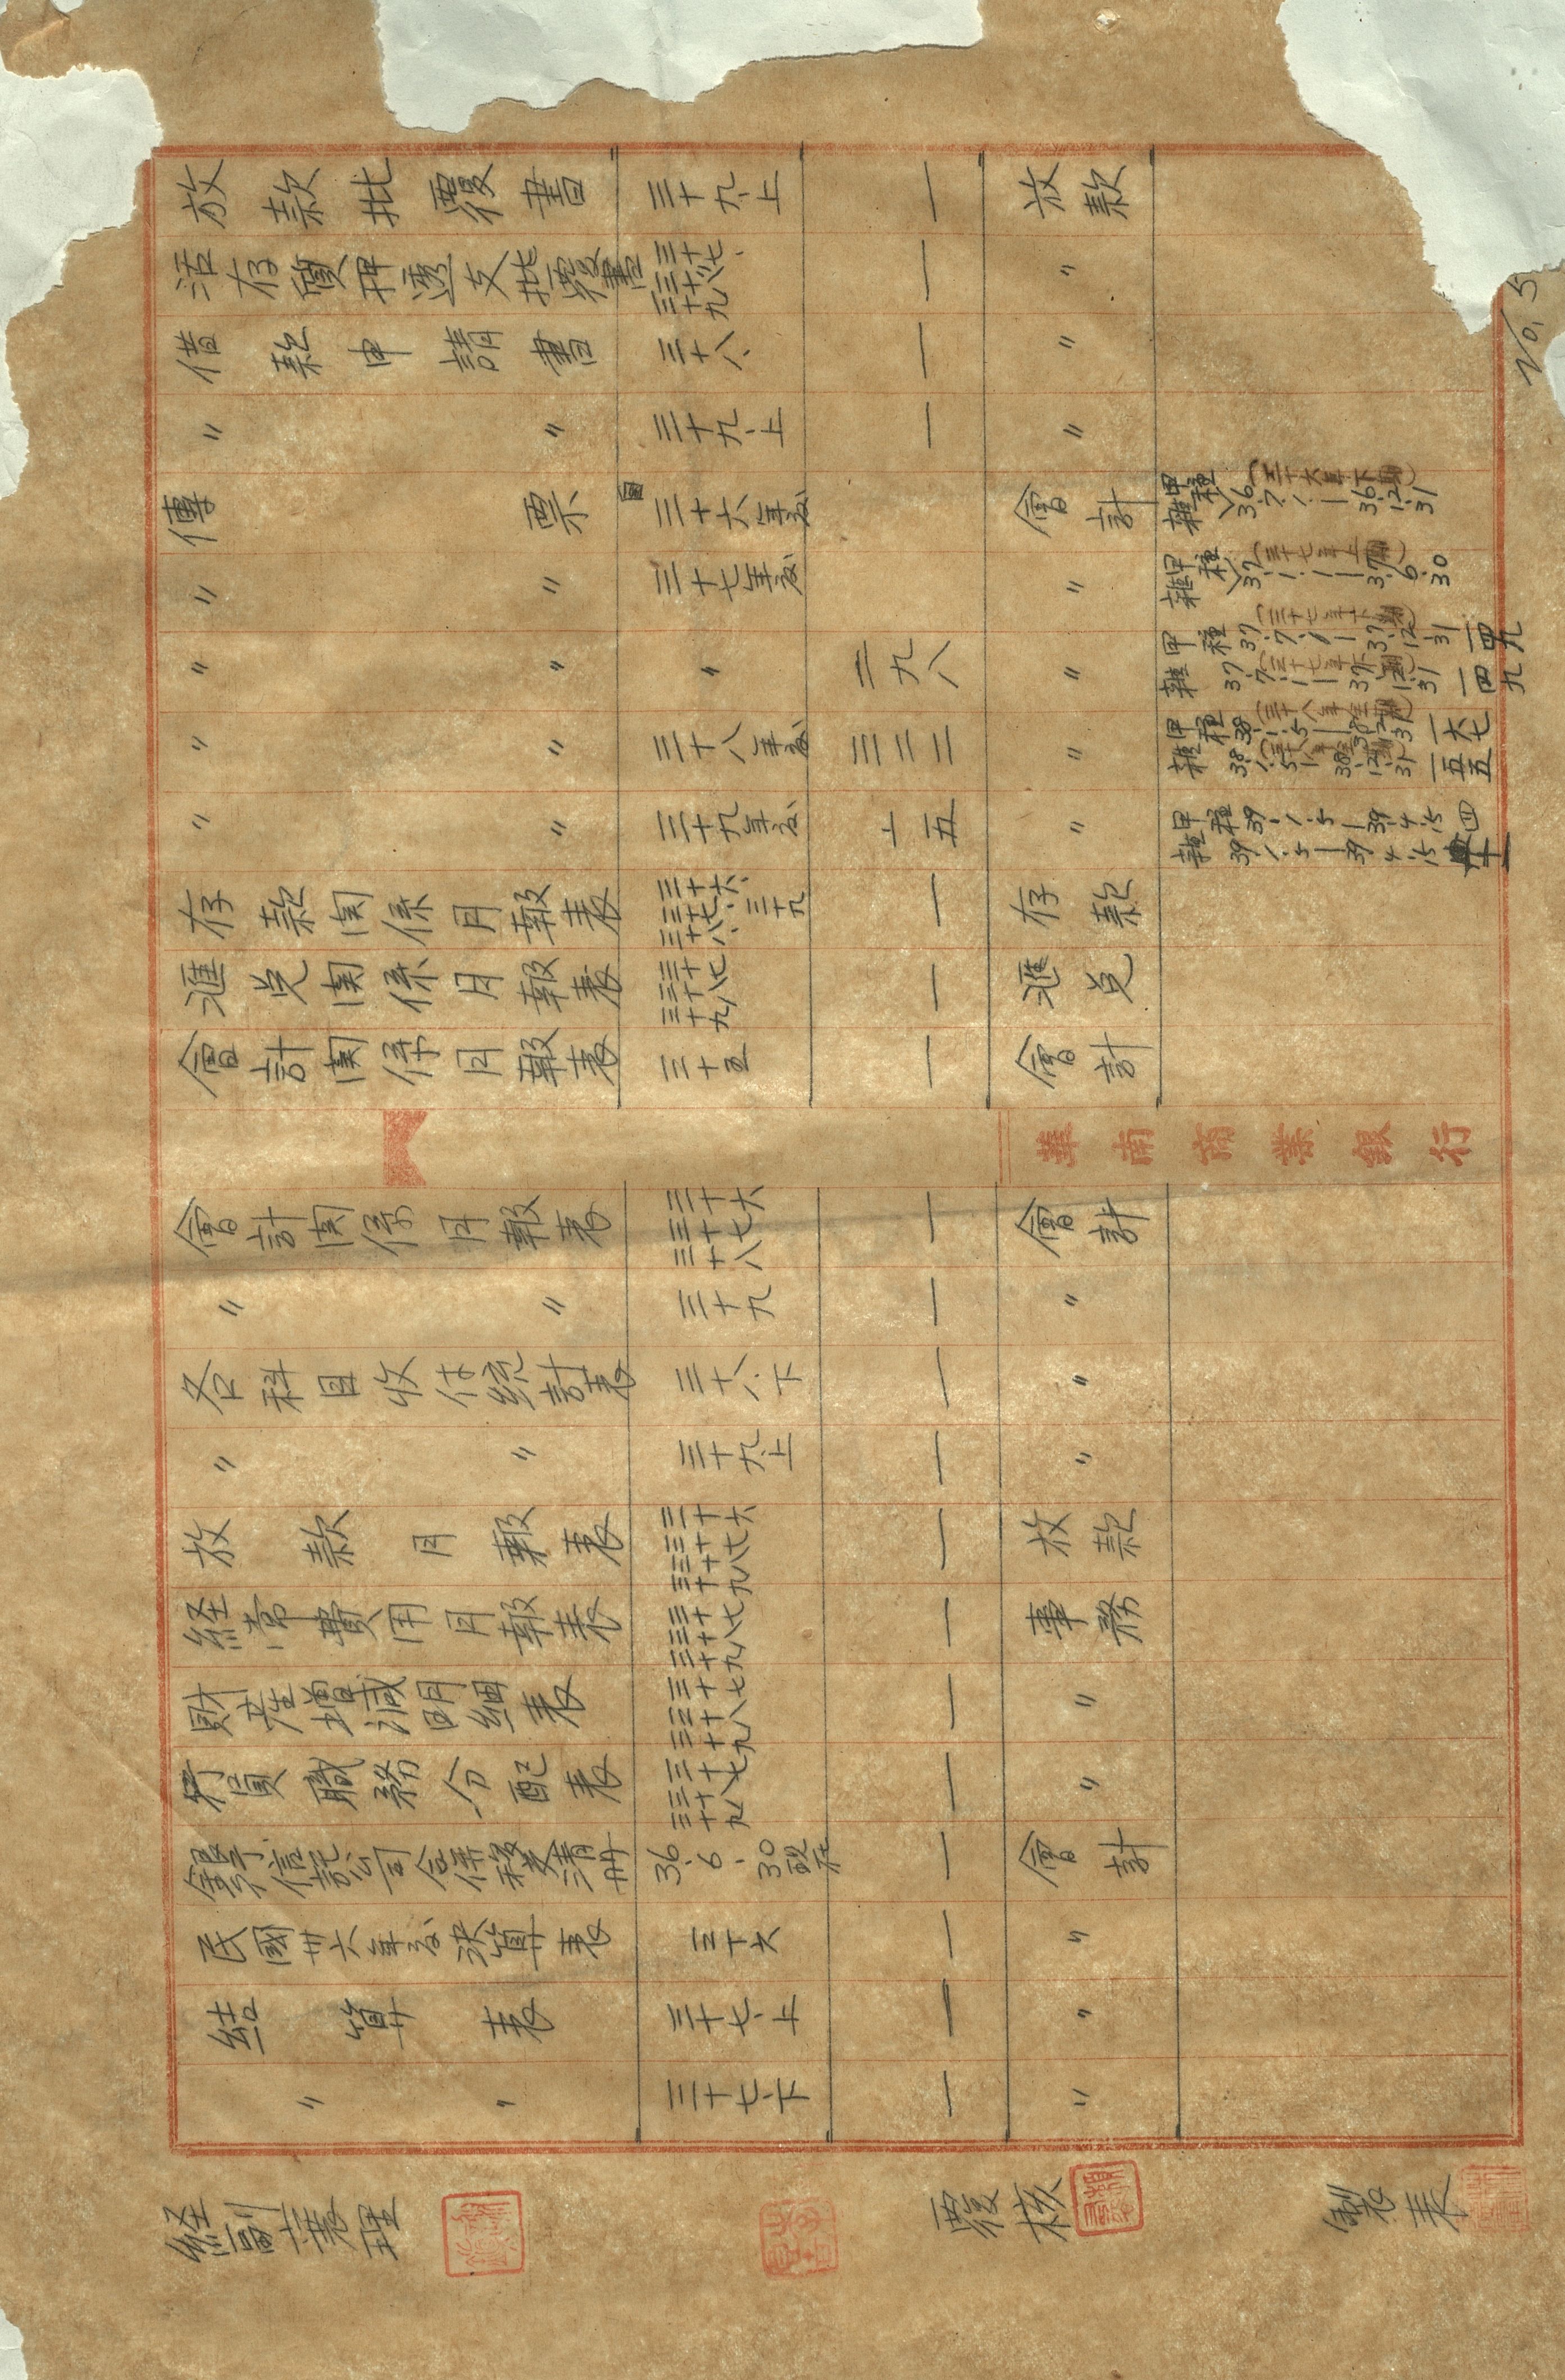 No. 5
放款批覆書 三十九、上 一 放款
活存質押透支批覆書 三十七、三十八、三十九 一 〃
借款申請書 三十八、 一 〃
〃 〃 三十九、上 一 〃
傳票 三十六年度 會計 甲種 雜種 36.7.1—36.12.31 (三十六年下期)
〃 〃 三十七年度 〃 甲種 雜 37.1.1—37.6.30 (三十七年上期)
〃 〃 〃 二九八 〃 甲種 37.7.1—37.12.31 一四九 (三十七年下期) 雜 37.7.1—37.12.31 一四九 (三十七年下期)
〃 〃 三十八年度 三二二 〃 甲種 38.1.5—38.12.31 一六七 雜 38.1.5—38.12.31 一五五
〃 〃 三十九年度 十五 〃 甲種 39.1.5—39.4.15 四 雜 39.1.5—39.4.15 十一
存款関係月報表 三十六、三十七、三十八、三十九 一 存款
滙兌関係月報表 三十七 三十八 三十九 一 滙兌
會計関係月報表 三十五 一 會計
華南商業銀行
會計関係月報表 三十六 三十七 三十八 一 會計
〃 〃 三十九 一 〃
各科目收付統計表 三十八、下 一 〃
〃 〃 三十九、上 一 〃
放款月報表 三十六 三十七 三十八 三十九 一 放款
経常費用月報表 三十七 三十八 三十九 一 事務
財産増減明細表 三十七 三十八 三十九 一 〃
行員職務分配表 三十七 三十八 三十九 一 〃
36.6.30現在 一 會計
民國卅六年度決算表 三十六 一 〃
結算表 三十七、上 一 〃
〃 〃 三十七、下 一 〃
経副襄理
覆核
製表